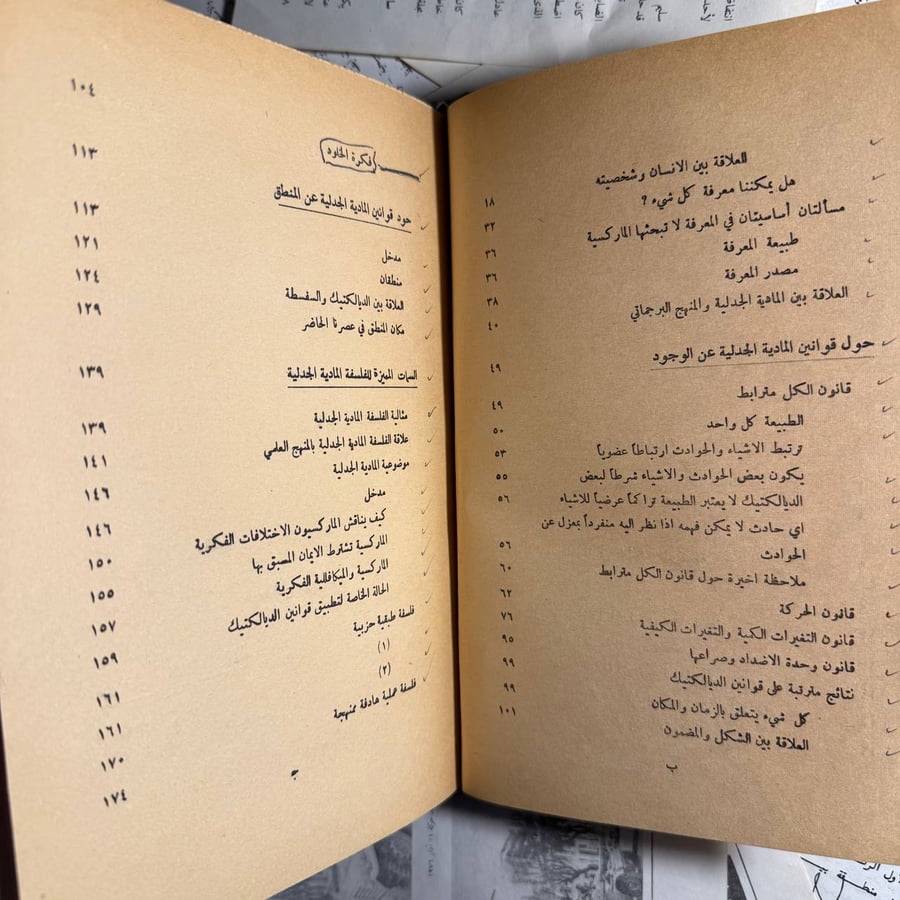 العلاقة بين الانسان وشخصيته ١٨
هل يمكننا معرفة كل شيء ؟ ٣٢
مسألتان أساسيتان في المعرفة لا تبحثها الماركسية ٣٦
طبيعة المعرفة ٣٦
مصدر المعرفة ٣٨
العلاقة بين المادية الجدلية والمنهج البرجماتي ٤٠
حول قوانين المادية الجدلية عن الوجود ٤٩
قانون الكل مترابط ٤٩
الطبيعة كل واحد ٥٠
ترتبط الاشياء والحوادث ارتباطاً عضوياً ٥٣
يكون بعض الحوادث والاشياء شرطاً لبعض ٥٥
الديالكتيك لا يعتبر الطبيعة تراكماً عرضياً للاشياء ٥٦
اي حادث لا يمكن فهمه اذا نظر اليه منفرداً بمعزل عن
الحوادث ٥٦
ملاحظة اخيرة حول قانون الكل مترابط ٦٠
قانون الحركة ٦٢
قانون التغيرات الكية والتغيرات الكيفية ٧٦
قانون وحدة الاضداد وصراعها ٩٥
نتائج مترتبة على قوانين الديالكتيك ٩٩
كل شيء يتعلق بالزمان والمكان ٩٩
العلاقة بين الشكل والمضمون ١٠١
ب
فكرة الخلود ١٠٤
حود قوانين المادية الجدلية عن المنطق ١١٣
مدخل ١١٣
منطقان ١٢١
العلاقة بين الديالكتيك والسفسطة ١٢٤
مكان المنطق في عصرنا الحاضر ١٢٩
السمات المميزة للفلسفة المادية الجدلية ١٣٩
مثالية الفلسفة المادية الجدلية ١٣٩
علاقة الفلسفة المادية الجدلية بالمنهج العلمي ١٤١
موضوعية المادية الجدلية ١٤٦
مدخل ١٤٦
كيف يناقش الماركسيون الاختلافات الفكرية ١٥٠
الماركسية تشترط الايمان المسبق بها ١٥٥
الماركسية والميكافللية الفكرية ١٥٧
الحالة الخاصة لتطبيق قوانين الديالكتيك ١٥٩
فلسفة طبقية حزبية ١٦١
(١) ١٦١
(٢) ١٧٠
فلسفة عملية هادفة ممنهجة ١٧٤
ج